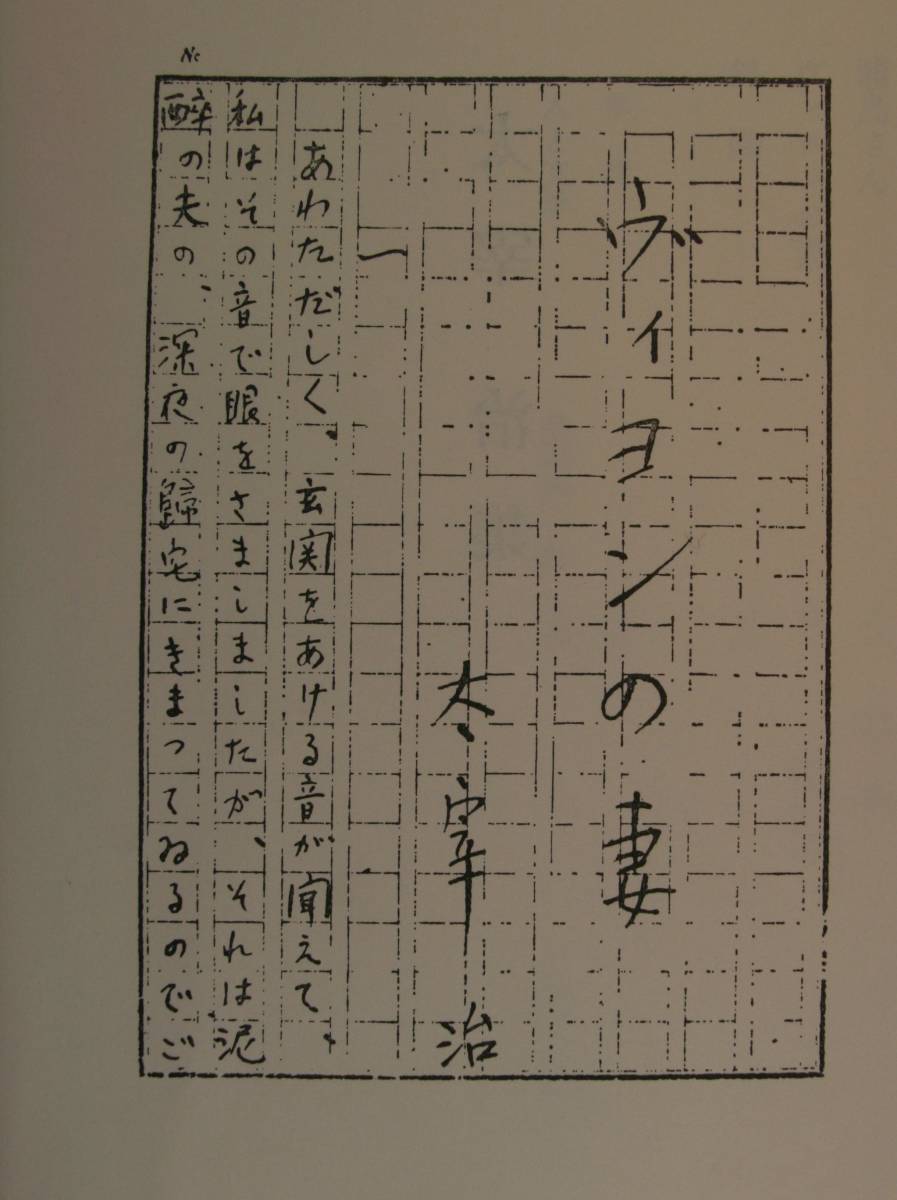 No
ヴィヨンの妻
太宰治
一
あわただしく、玄関をあける音が聞えて、
私はその音で眼をさましましたが、それは泥
酔の夫の、深夜の歸宅にきまつてゐるのでご